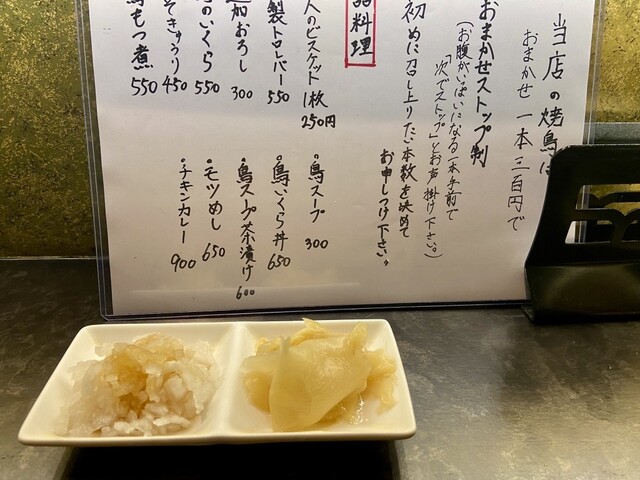 当店の焼鳥は
おまかせ一本三百円で
おまかせストップ制
(お腹がいっぱいになる一本手前で
「次でストップ」とお声掛け下さい。)
初めに召し上りたい本数を決めて
お申しつけ下さい。
品料理
人のビスケット1枚
250円
製トロレバー
550
おろし
300
のいくら
550
そきゅうり
450
鳥もつ煮
550
・鳥スープ 300
・鳥いくら丼 650
・鳥スープ茶漬け 600
・モツめし 650
・チキンカレー 900